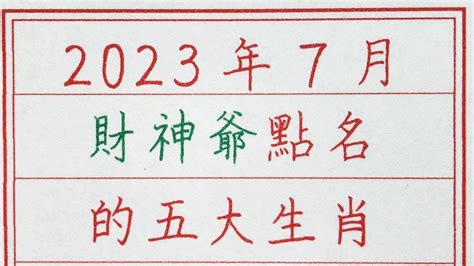 2023年7月
財神爺點名
的五大生肖